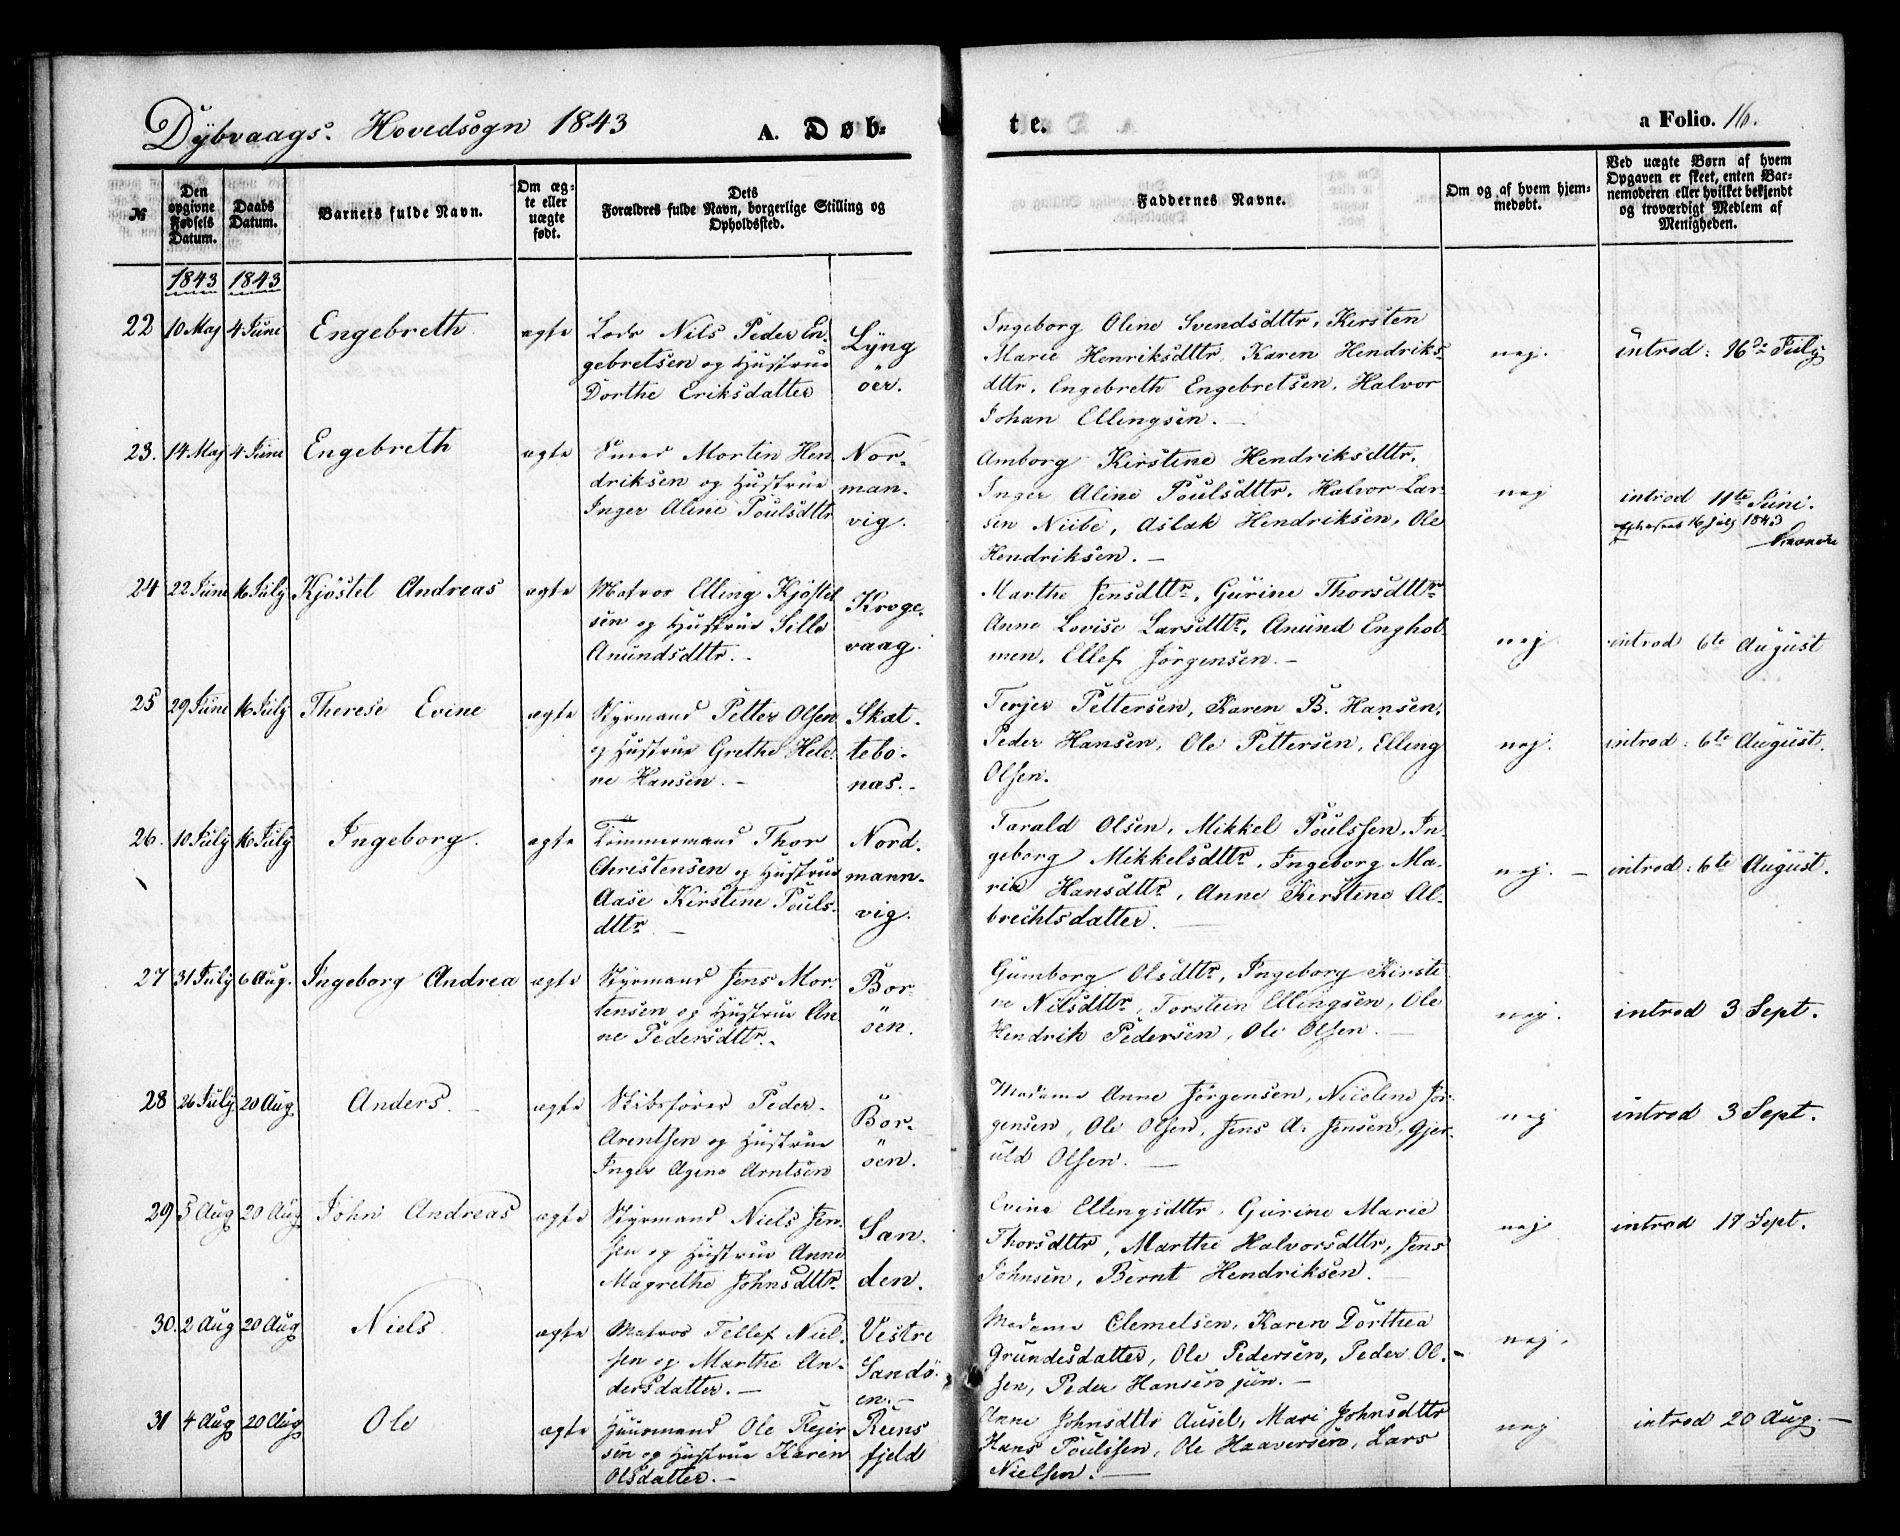 Dybvaags. Hovedsogn 1843
A. Døb-
te.
a Folio. 16.
№
Den opgivne Fødsels Datum.
Daabs Datum.
Barnets fulde Navn.
Om ægte eller uægte født.
Dets Forældres fulde Navn, borgerlige Stilling og Opholdssted.
Faddernes Navne.
Om og af hvem hjemmedøbt.
Ved uægte Børn af hvem Opgaven er skeet, enten Barnemoderen eller hvilket bekjendt og troværdigt Medlem af Menigheden.
1843 1843
22 10 Maj 4 Juni Engebreth ægte
Lods Nils Peder En-
gebretsen og Hustrue
Dorthe Eriksdatter
Lyng
öer.
Ingeborg Oline Svendsdttr, Kirsten
Marie Henriksdttr, Karen Hendriks-
dttr, Engebreth Engebretsen, Halvor
Johan Ellingsen. —
nej.
introd: 16de July
23. 14 Maj 4 Juni Engebreth ægte
Smed Morten Hen
driksen og Hustrue
Inger Aline Poulsdttr
Nor-
man-
vig.
Amborg Kirstine Hendriksdttr,
Inger Aline Poulsdttr, Halvor Lar-
sen Niibe, Aslak Hendriksen, Ole
Hendriksen. —
nej
introd 11te Juni.
16 July 1843
24 22 Juni 16 July Kjöstel Andreas ægte
Matros Elling Kjöstel
sen og Hustrue Sille
Anundsdttr. -
Kroge-
vaag.
Marthe Jensdttr, Gurine Thorsdttr
Anne Lovise Larsdttr, Anund Enghol-
men, Ellef Jörgensen. —
nej
introd 6te August
25 29 Juni 16 July Therese Evine ægte
Styrmand Petter Olsen
og Hustrue Grethe Hele-
ne Hansen. —
Skat-
tebo-
nas. -
Terjer Pettersen, Karen B. Hansen,
Peder Hansen, Ole Pettersen, Elling
Olsen.
nej.
introd: 6te August.
26. 10 July 16 July Ingeborg. ægte
Tömmermand Thor
Christensen og Hustrue
Aase Kirstine Pouls-
dttr. —
Nord-
mann-
vig.
Tarald Olsen, Mikkel Poulssen, In-
geborg Mikkelsdttr, Ingeborg Ma-
rie Hansdttr, Anne Kirstine Al-
brechtsdatter. —
nej. —
introd: 6te August.
27 31 July 6 Aug. Ingeborg Andrea ægte
Styrmand Jens Mor-
tensen og Hustrue An
ne Pedersdttr.
Bor-
öen.
Gumborg Olsdttr, Ingeborg Kirsti-
ne Nilsdttr, Torstein Ellingsen, Ole
Hendrik Pedersen, Ole Olsen. —
nej.
introd 3 Sept.
28 26 July 20 Aug Anders. — ægte
Skibsförer Peder
Arentsen og Hustrue
Inger Agene Arntsen
Bor-
öen.
Madame Anne Jörgensen, Nicoline Jör-
gensen, Ole Olsen, Jens A. Jensen, Gjer-
uld Olsen. —
nej
introd 3 Sept.
29 5 Aug 20 Aug John Andreas ægte
Styrmand Niels Jen-
sen og Hustrue Anne
Magrethe Johnsdttr.
San-
den.
Evine Ellingsdttr, Gurine Marie
Thorsdttr, Marthe Halvorsdttr, Jens
Johnsen, Bernt Hendriksen.
nej
introd 17 Sept.
30. 2 Aug 20 Aug Niels ægte
Matros Tellef Niel-
sen og Marthe An-
dersdatter. —
Vestre
Sandö-
en. -
Madame Clemetsen, Karen Dorthea
Grundesdatter, Ole Pedersen, Peder Ol-
sen, Peder Hansen jun. —
nej.
31 4 Aug 20 Aug Ole ægte
Huusmand Ole Rejer
sen og Hustrue Karen
Olsdatter. —
Reens
fjeld
Anne Johnsdttr Ausel, Mari Johnsdttr
Hans Poulssen, Ole Haaversen, Lars
Nielsen. —
nej
introd 20 Aug. —